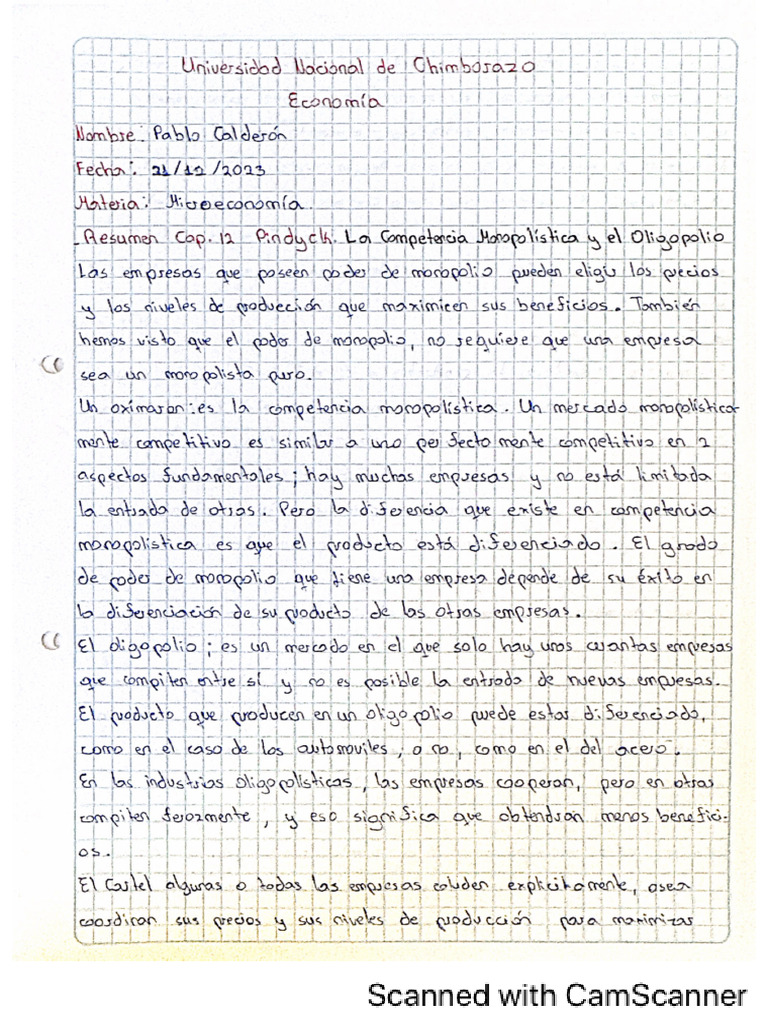 Universidad Nacional de Chimborazo
Economía
Nombre: Pablo Calderón
Fecha: 21/12/2023
Materia: Microeconomía.
Resumen Cap. 12 Pindyck. La Competencia Monopolística y el Oligopolio
Las empresas que poseen poder de monopolio pueden eligir los precios
y los niveles de producción que maximicen sus beneficios. También
hemos visto que el poder de monopolio, no requiere que una empresa
sea un monopolista puro.
Un oximaron: es la competencia monopolística. Un mercado monopolística
mente competitivo es similar a uno perfectomente competitivo en 2
aspectos fundamentoles; hay muchas empresas y no está limitada
la entrada de otras. Pero la diferencia que existe en competencia
monopolística es que el producto está diferenciado. El grado
de poder de monopolio que tiene una empresa depende de su éxito en
la diferenciación de su producto de las otras empresas.
El oligopolio; es un mercado en el que solo hay unos cuantas empresas
que compiten entre sí y no es posible la entrada de nuevas empresas.
El producto que producen en un oligopolio puede estar diferenciado,
como en el caso de los automoviles, o no, como en el del acero.
En las industrias oligopolísticas, las empresas cooperan, pero en otras
compiten ferozmente, y eso significa que obtendran menos benefici-
os.
El Cartel algunas o todas las empresas coluden explicitamente, osea
coordinan sus precios y sus niveles de producción para maximizar
Scanned with CamScanner